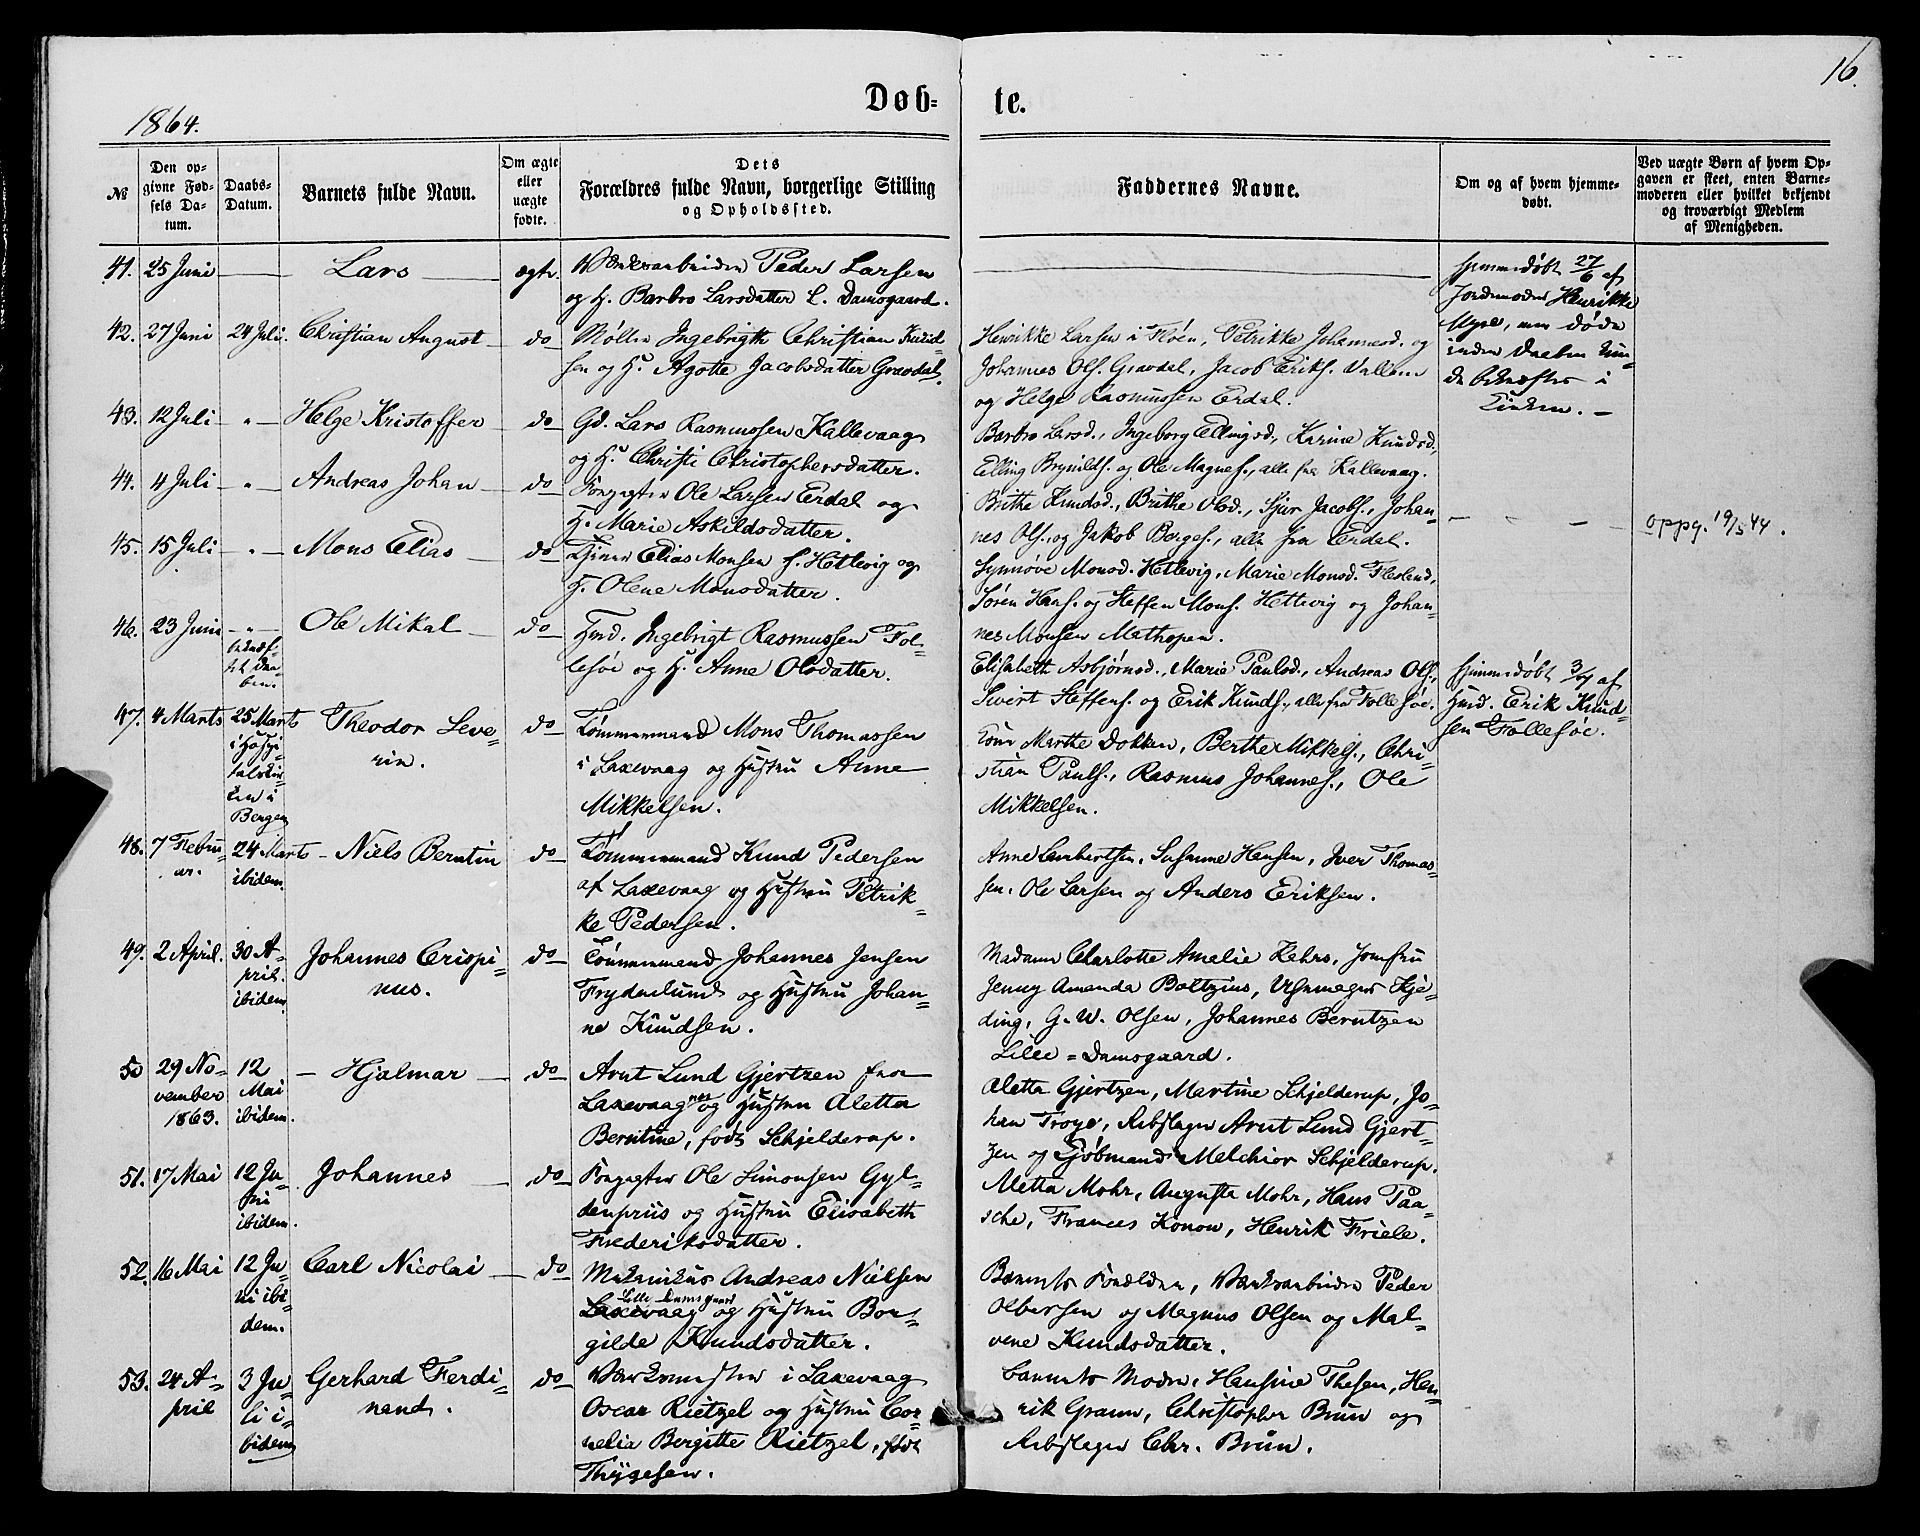 16.
Døb-
te.
1864.
№
Den op-
givne Fød-
sels Da-
tum.
Daabs-
Datum.
Barnets fulde Navn.
Om ægte
eller
uægte
fødte.
Dets
Forældres fulde Navn, borgerlige Stilling
og Opholdssted.
Faddernes Navne.
Om og af hvem hjemme-
døbt.
Ved uægte Børn af hvem Op-
gaven er skeet, enten Barne-
moderen eller hvilket bekjendt
og troværdigt Medlem
af Menigheden.
41. 25 Juni — Lars — ægte.
Værksarbeider Peder Larsen
og H. Barbro Larsdatter L. Damsgaard.
Hjemmedøbt 27/6 af
Jordemoder Henrikke
Myre, men døde
inden Daaben kun-
de bekræftes i
Kirken. —
42. 27 Juni 24 Juli. Christian August — do
Møller Ingebrigth Christian Knud-
sen og H. Agothe Jacobsdatter Gravdal.
Henrikke Larsen i Fløen, Petrikke Johannesd. og
Johannes Ols. Gravdal, Jacob Eriks. Vallem
og Helge Rasmussen Erdal.
43. 12 Juli — " — Helge Kristoffer — do
Gd. Lars Rasmussen Kallevaag
og H. Christi Christophersdatter.
Barbro Larsd., Ingeborg Ellingsd., Karine Knudsd.,
Elling Brynilds. og Ole Magnes., alle fra Kallevaag.
44. 4 Juli — " — Andreas Johan — do
Forpagter Ole Larsen Erdal og
H. Marie Askildsdatter.
Brithe Knudsd., Brithe Olsd., Sjur Jacobs., Johan-
nes Ols. og Jakob Berges., alle fra Erdal.
45. 15 Juli — " — Mons Elias — do
Elias Monsen f. Hetlevig og
H. Olene Monsdatter.
Synnøve Monsd. Hetlevig, Marie Monsd. Flesland,
Søren Hans. og Steffen Mons. Hetlevig og Johan-
nes Monsen Mathopen.
— — — —
oppg. 19/5 44.
46. 23 Juni — " —
bekræf-
tet Daa-
ben.
Ole Mikal — do
Hmd. Ingebrigt Rasmussen Fol-
lesøe og H. Anne Olsdatter.
Elisabeth Asbjørnsd., Marie Paulsd., Andreas Ols.,
Sivert Steffens. og Erik Knuds., alle fra Follesøe.
Hjemmedøbt 3/7 af
Hmd. Erik Knud-
sen Follesøe.
47. 4 Marts 25 Marts
i Hospi-
talskir-
ken i
Bergen
Theodor Seve-
rin. do
Tømmermand Mons Thomassen
i Laxevaag og Hustru Anne
Mikkelsen.
Marthe Dokken, Berthe Mikkels., Chri-
stian Pauls., Rasmus Johannes., Ole
Mikkelsen.
48. 7 Febru-
ar.
24 Marts
ibidem
— Niels Berntin do
Tømmermand Knud Pedersen
af Laxevaag og Hustru Petrik-
ke Pedersen.
Anne Lambertsen, Susanne Hansen, Iver Thomas-
sen, Ole Larsen og Anders Eriksen.
49. 2 April. 30 A-
pril.
ibidem
Johannes Crispi-
nus. do
Tømmermand Johannes Jensen
Frydenlund og Hustru Johan-
ne Knudsen.
Madame Charlotte Amalie Kahrs, Jomfru
Jenny Amanda Boltzius, Uhrmager Kje-
ding, G. W. Olsen, Johannes Berntzen
Lille=Damsgaard.
50 29 No-
vember
1863.
12
Mai
ibidem.
— Hjalmar — do
Arnt Lund Gjertzen fra
Laxevaagnes og Hustru Aletta
Berntine, født Schjelderup.
Aletta Gjertzen, Martine Schjelderup, Jo-
han Troye, Rebslager Arnt Lund Gjert-
zen og Kjøbmand Melchior Schjelderup.
51. 17 Mai 12 Ju-
ni
ibidem.
Johannes — do
Forpagter Ole Simonsen Gyl-
denpriis og Hustru Elisabeth
Frederiksdatter.
Aletta Mohr, Augusta Mohr, Hans Paa-
sche, Frances Konow, Henrik Friele.
52. 16 Mai 12 Ju-
ni ibi-
dem.
Carl Nicolai — do
Mekanikus Andreas Nielsen
Lille Damsgaard
Laxevaag og Hustru Bor-
gilde Knudsdatter.
Barnets Forældre, Værksarbeider Peder
Olbersen og Magnus Olsen og Mal-
vene Knudsdatter.
53. 24 A-
pril
3 Ju-
li i-
bidem
Gerhard Ferdi-
nand. do
Værkmester i Laxevaag
Oscar Rietzel og Hustru Cor-
nelia Bergitte Rietzel, født
Thygesen.
Barnets Moder, Hansine Thesen, Hen-
rik Grann, Christopher Brun og
Rebslager Chr. Brun.